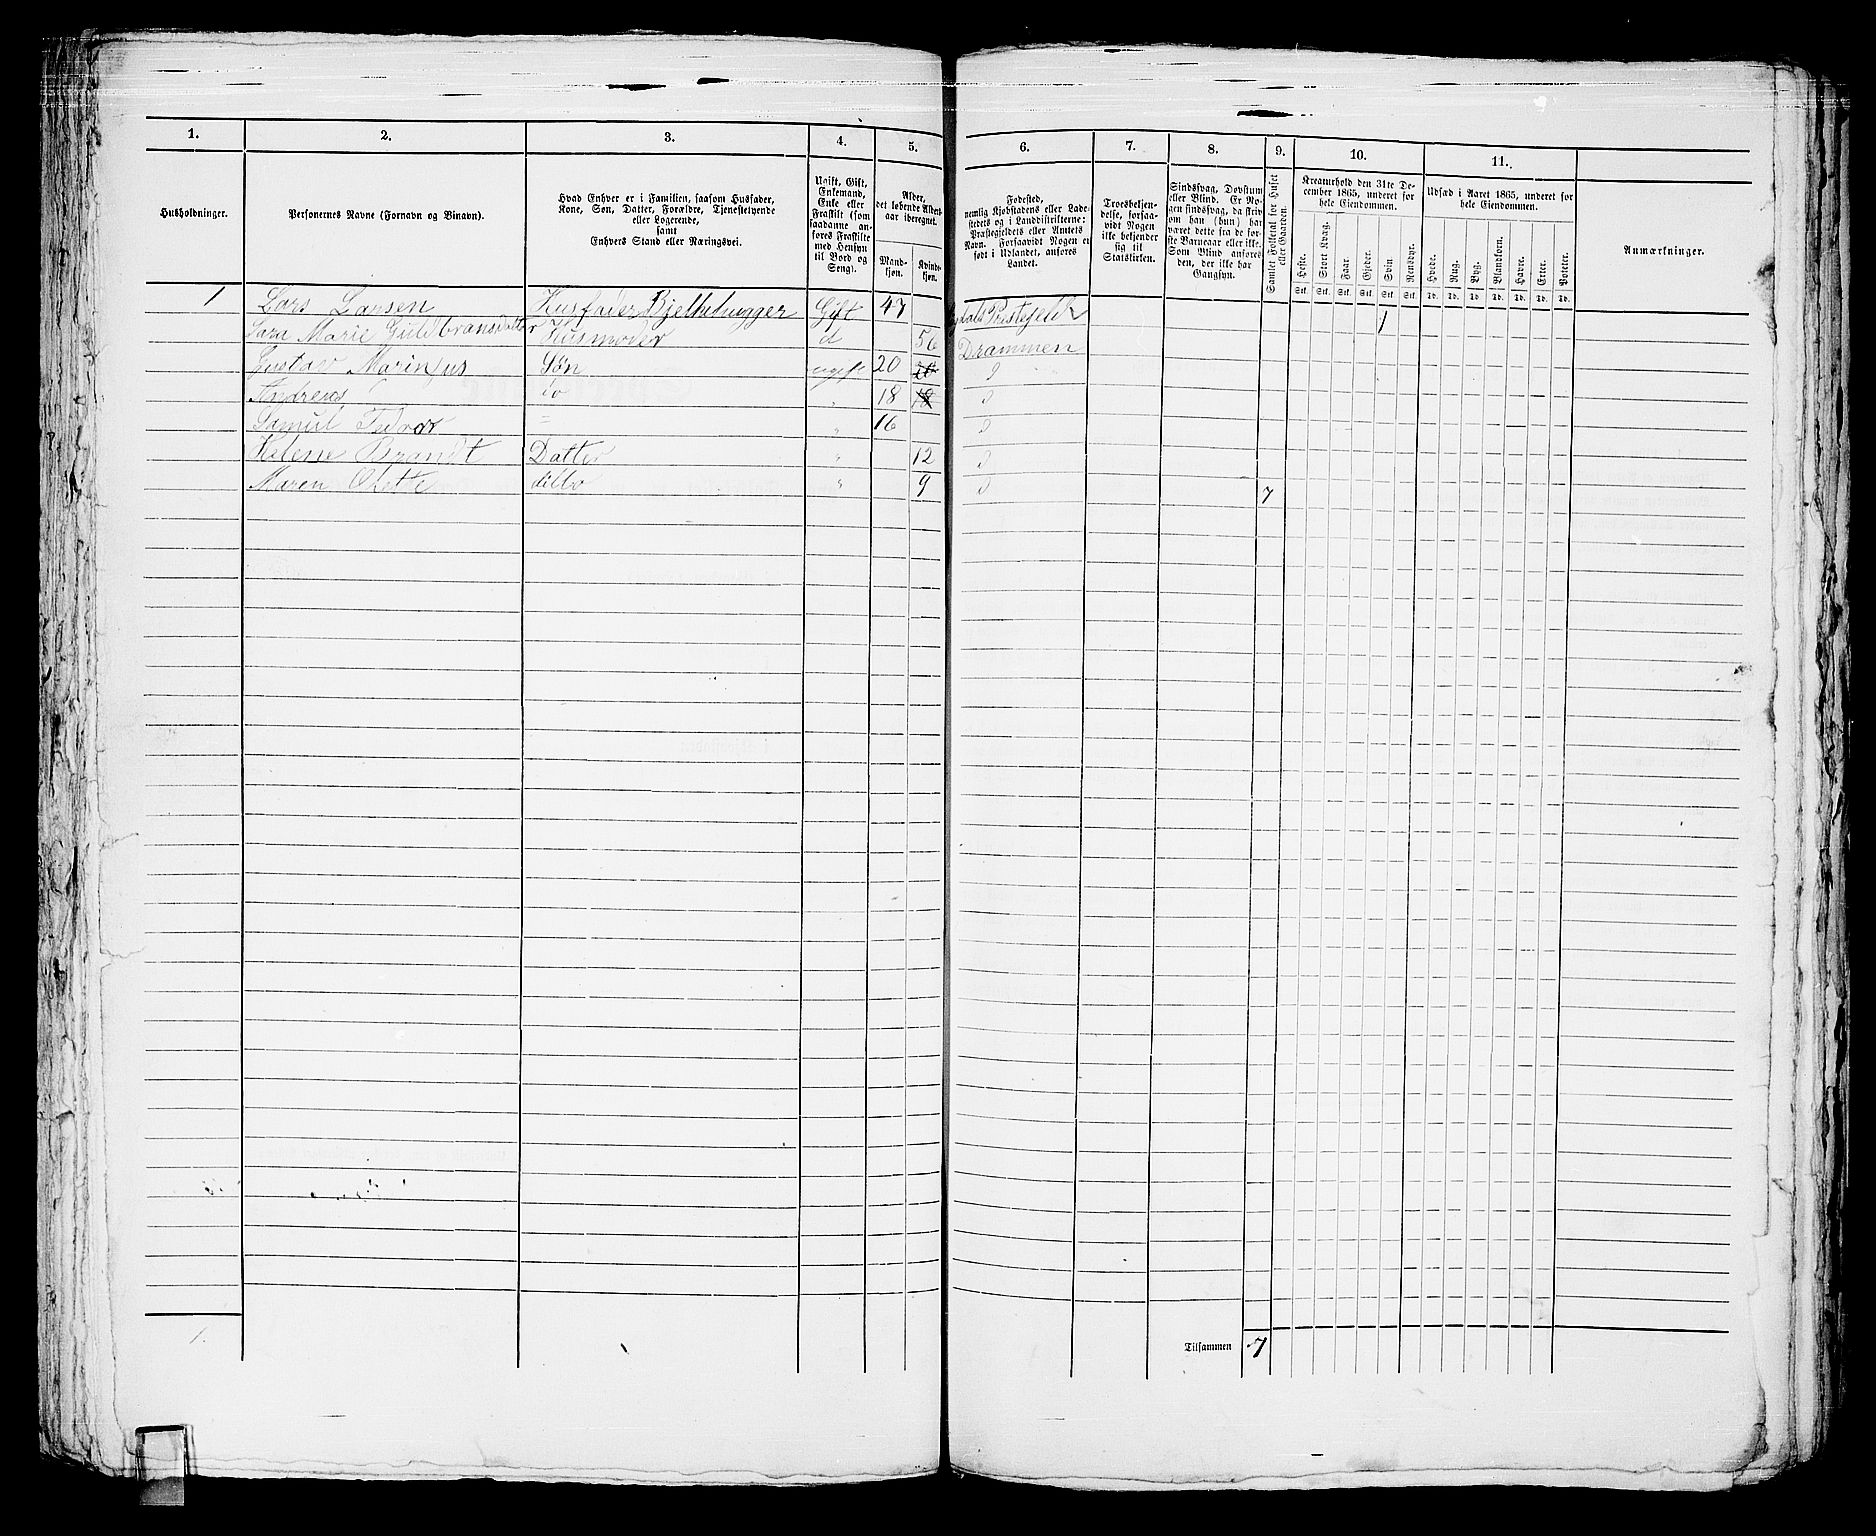 1. 2. 3. 4. 5. 6. 7. 8. 9. 10. 11.
Husholdninger.
Personernes Navne (Fornavn og Binavn).
Hvad Enhver er i Familien, saasom Husfader,
Kone, Søn, Datter, Forældre, Tjenestetyende
eller Logerende,
samt
Enhvers Stand eller Næringsvei.
Ugift, Gift,
Enkemand,
Enke eller
Fraskilt (som
saadanne an-
føres Fraskilte
med Hensyn
til Bord og
Seng).
Alder,
det løbende Alders-
aar iberegnet.
Mand-
kjøn.
Kvind-
kjøn.
Fødested,
nemlig Kjøbstadens eller Lade-
stedets og i Landdistrikterne:
Præstegjeldets eller Amtets
Navn. Forsaavidt Nogen er
født i Udlandet, anføres
Landet.
Troesbekjen-
delse, forsaa-
vidt Nogen
ikke bekjender
sig til
Statskirken.
Sindssvag, Døvstum
eller Blind. Er No-
gen sindssvag, da skriv
om han (hun) har
været dette fra de før-
ste Barneaar eller ikke.
Som Blind anføres
den, der ikke har
Gangsyn.
Samlet Folketal for Huset
eller Gaarden.
Kreaturhold den 31te De-
cember 1865, underet for
hele Eiendommen.
Heste. Stort Kvæg. Faar. Gjeder. Svin. Rensdyr.
Stk. Stk. Stk. Stk. Stk. Stk.
Udsæd i Aaret 1865, underet for
hele Eiendommen.
Hvede. Rug. Byg. Blandkorn. Havre. Erter. Poteter.
Td. Td. Td. Td. Td. Td. Td.
Anmærkninger.
1 Lars Larsen Husfader Bjelkehugger Gift 47 Præstejeld 1
Sara Marie Guldbransdatter Husmoder d 56 Drammen
Gustav Marinius Søn ugift 20
Andreas do " 18 18
Samuel Fedvor = " 16
Helene Brandt Datter " 12
Maren Olette ditto " 9 7
1.
Tilsammen 7